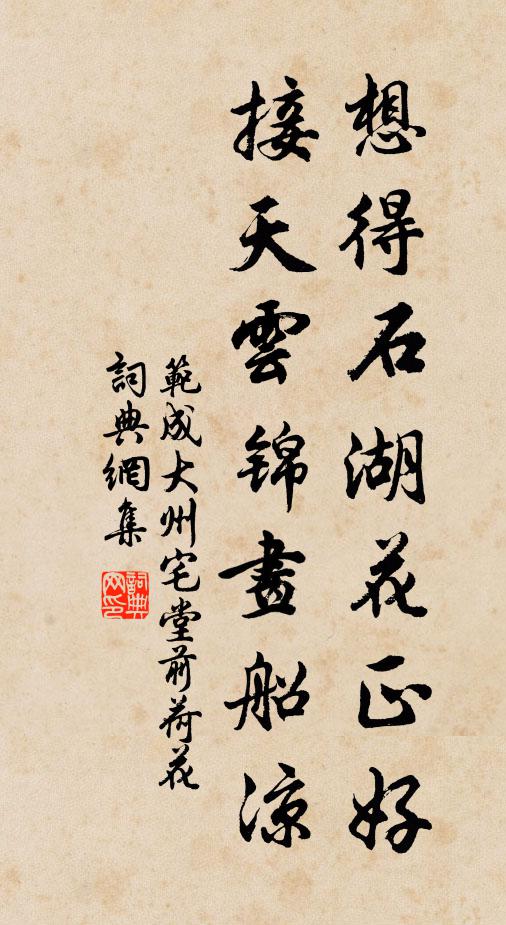 想得石湖花正好
接天雲錦畫船涼
範成大州宅堂前荷花
詞典網集
詞典網印